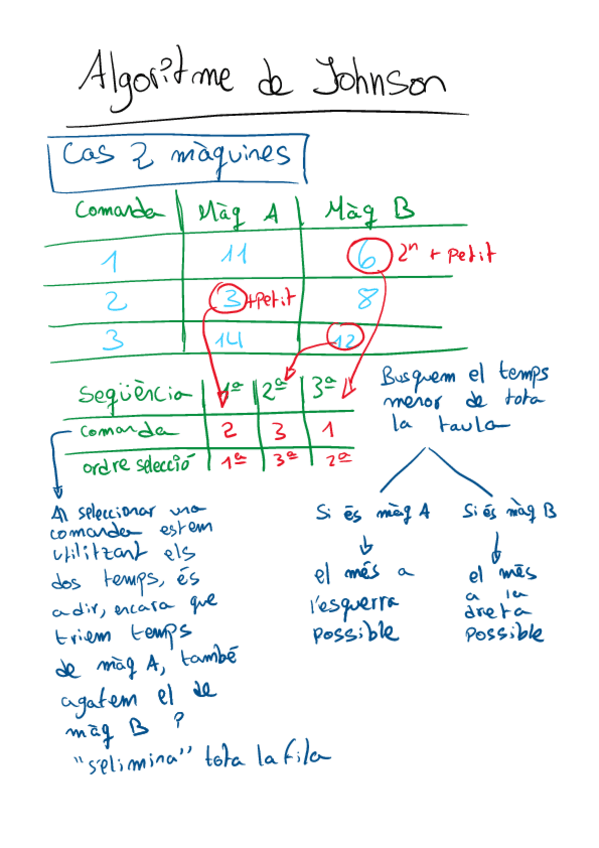 Algoritme de Johnson
Cas 2 màquines
Comanda Màq A Màq B
1 11 6 2ⁿ + petit
2 3 +petit 8
3 14 12
Seqüència 1ª 2ª 3ª
comanda 2 3 1
ordre selecció 1ª 3ª 2ª
Busquem el temps
menor de tota
la taula
Si és màq A
el més a
l'esquerra
possible
Si és màq B
el més
a la
dreta
possible
Al seleccionar una
comanda estem
utilitzant els
dos temps, és
a dir, encara que
triem temps
de màq A, també
agafem el de
màq B ?
"s'elimina" tota la fila